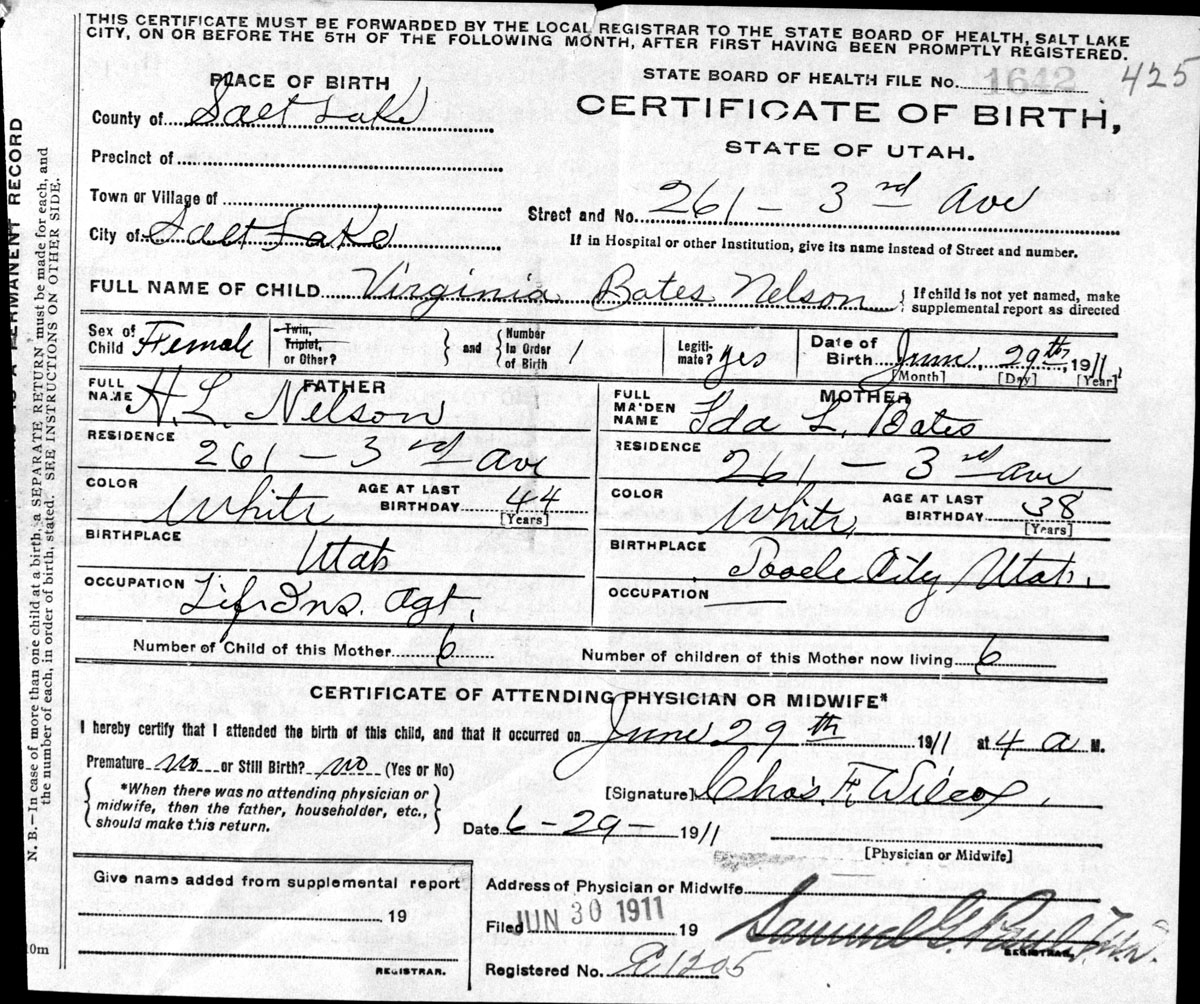 THIS CERTIFICATE MUST BE FORWARDED BY THE LOCAL REGISTRAR TO THE STATE BOARD OF HEALTH, SALT LAKE
CITY, ON OR BEFORE THE 5TH OF THE FOLLOWING MONTH, AFTER FIRST HAVING BEEN PROMPTLY REGISTERED.
PLACE OF BIRTH
STATE BOARD OF HEALTH FILE No. 1642 425
County of Salt Lake
CERTIFICATE OF BIRTH,
STATE OF UTAH.
Precinct of
Town or Village of
Street and No. 261 - 3rd Ave
City of Salt Lake
If in Hospital or other Institution, give its name instead of Street and number.
FULL NAME OF CHILD Virginia Bates Nelson
If child is not yet named, make
supplemental report as directed
Sex of
Child Female
Twin,
Triplet,
or Other?
and
Number
in Order
of Birth 1
Legiti-
mate? Yes
Date of
Birth June 29th, 1911
[Month] [Day] [Year]
FATHER
FULL
NAME H. L. Nelson
MOTHER
FULL
MAIDEN
NAME Ida L. Bates
RESIDENCE
261 - 3rd Ave
RESIDENCE
261 - 3rd Ave
COLOR
White
AGE AT LAST
BIRTHDAY 44
[Years]
COLOR
White
AGE AT LAST
BIRTHDAY 38
[Years]
BIRTHPLACE
Utah
BIRTHPLACE
Tooele City, Utah.
OCCUPATION
Life Ins. Agt.
OCCUPATION
Number of Child of this Mother 6
Number of children of this Mother now living 6
CERTIFICATE OF ATTENDING PHYSICIAN OR MIDWIFE*
I hereby certify that I attended the birth of this child, and that it occurred on June 29th 1911 at 4 a M.
Premature no or Still Birth? no (Yes or No)
*When there was no attending physician or
midwife, then the father, householder, etc.,
should make this return.
[Signature] Chas. F. Wilcox.
Date 6-29- 1911
[Physician or Midwife]
Give name added from supplemental report
19
REGISTRAR.
Address of Physician or Midwife
Filed JUN 30 1911 19
Samuel G. Paul
REGISTRAR.
Registered No. 1205
IS A PERMANENT RECORD
N. B.—In case of more than one child at a birth, a SEPARATE RETURN must be made for each, and
the number of each, in order of birth, stated. SEE INSTRUCTIONS ON OTHER SIDE.
10m